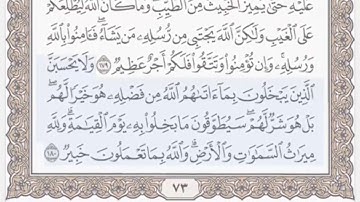 عَلَيْهِ حَتَّىٰ يَمِيزَ الْخَبِيثَ مِنَ الطَّيِّبِ وَمَا كَانَ اللَّهُ لِيُطْلِعَكُمْ
عَلَى الْغَيْبِ وَلَٰكِنَّ اللَّهَ يَجْتَبِي مِن رُّسُلِهِ مَن يَشَاءُ فَآمِنُوا بِاللَّهِ
وَرُسُلِهِ وَإِن تُؤْمِنُوا وَتَتَّقُوا فَلَكُمْ أَجْرٌ عَظِيمٌ ١٧٩ وَلَا يَحْسَبَنَّ
الَّذِينَ يَبْخَلُونَ بِمَا آتَاهُمُ اللَّهُ مِن فَضْلِهِ هُوَ خَيْرًا لَّهُم
بَلْ هُوَ شَرٌّ لَّهُمْ سَيُطَوَّقُونَ مَا بَخِلُوا بِهِ يَوْمَ الْقِيَامَةِ وَلِلَّهِ
مِيرَاثُ السَّمَاوَاتِ وَالْأَرْضِ وَاللَّهُ بِمَا تَعْمَلُونَ خَبِيرٌ ١٨٠
٧٣